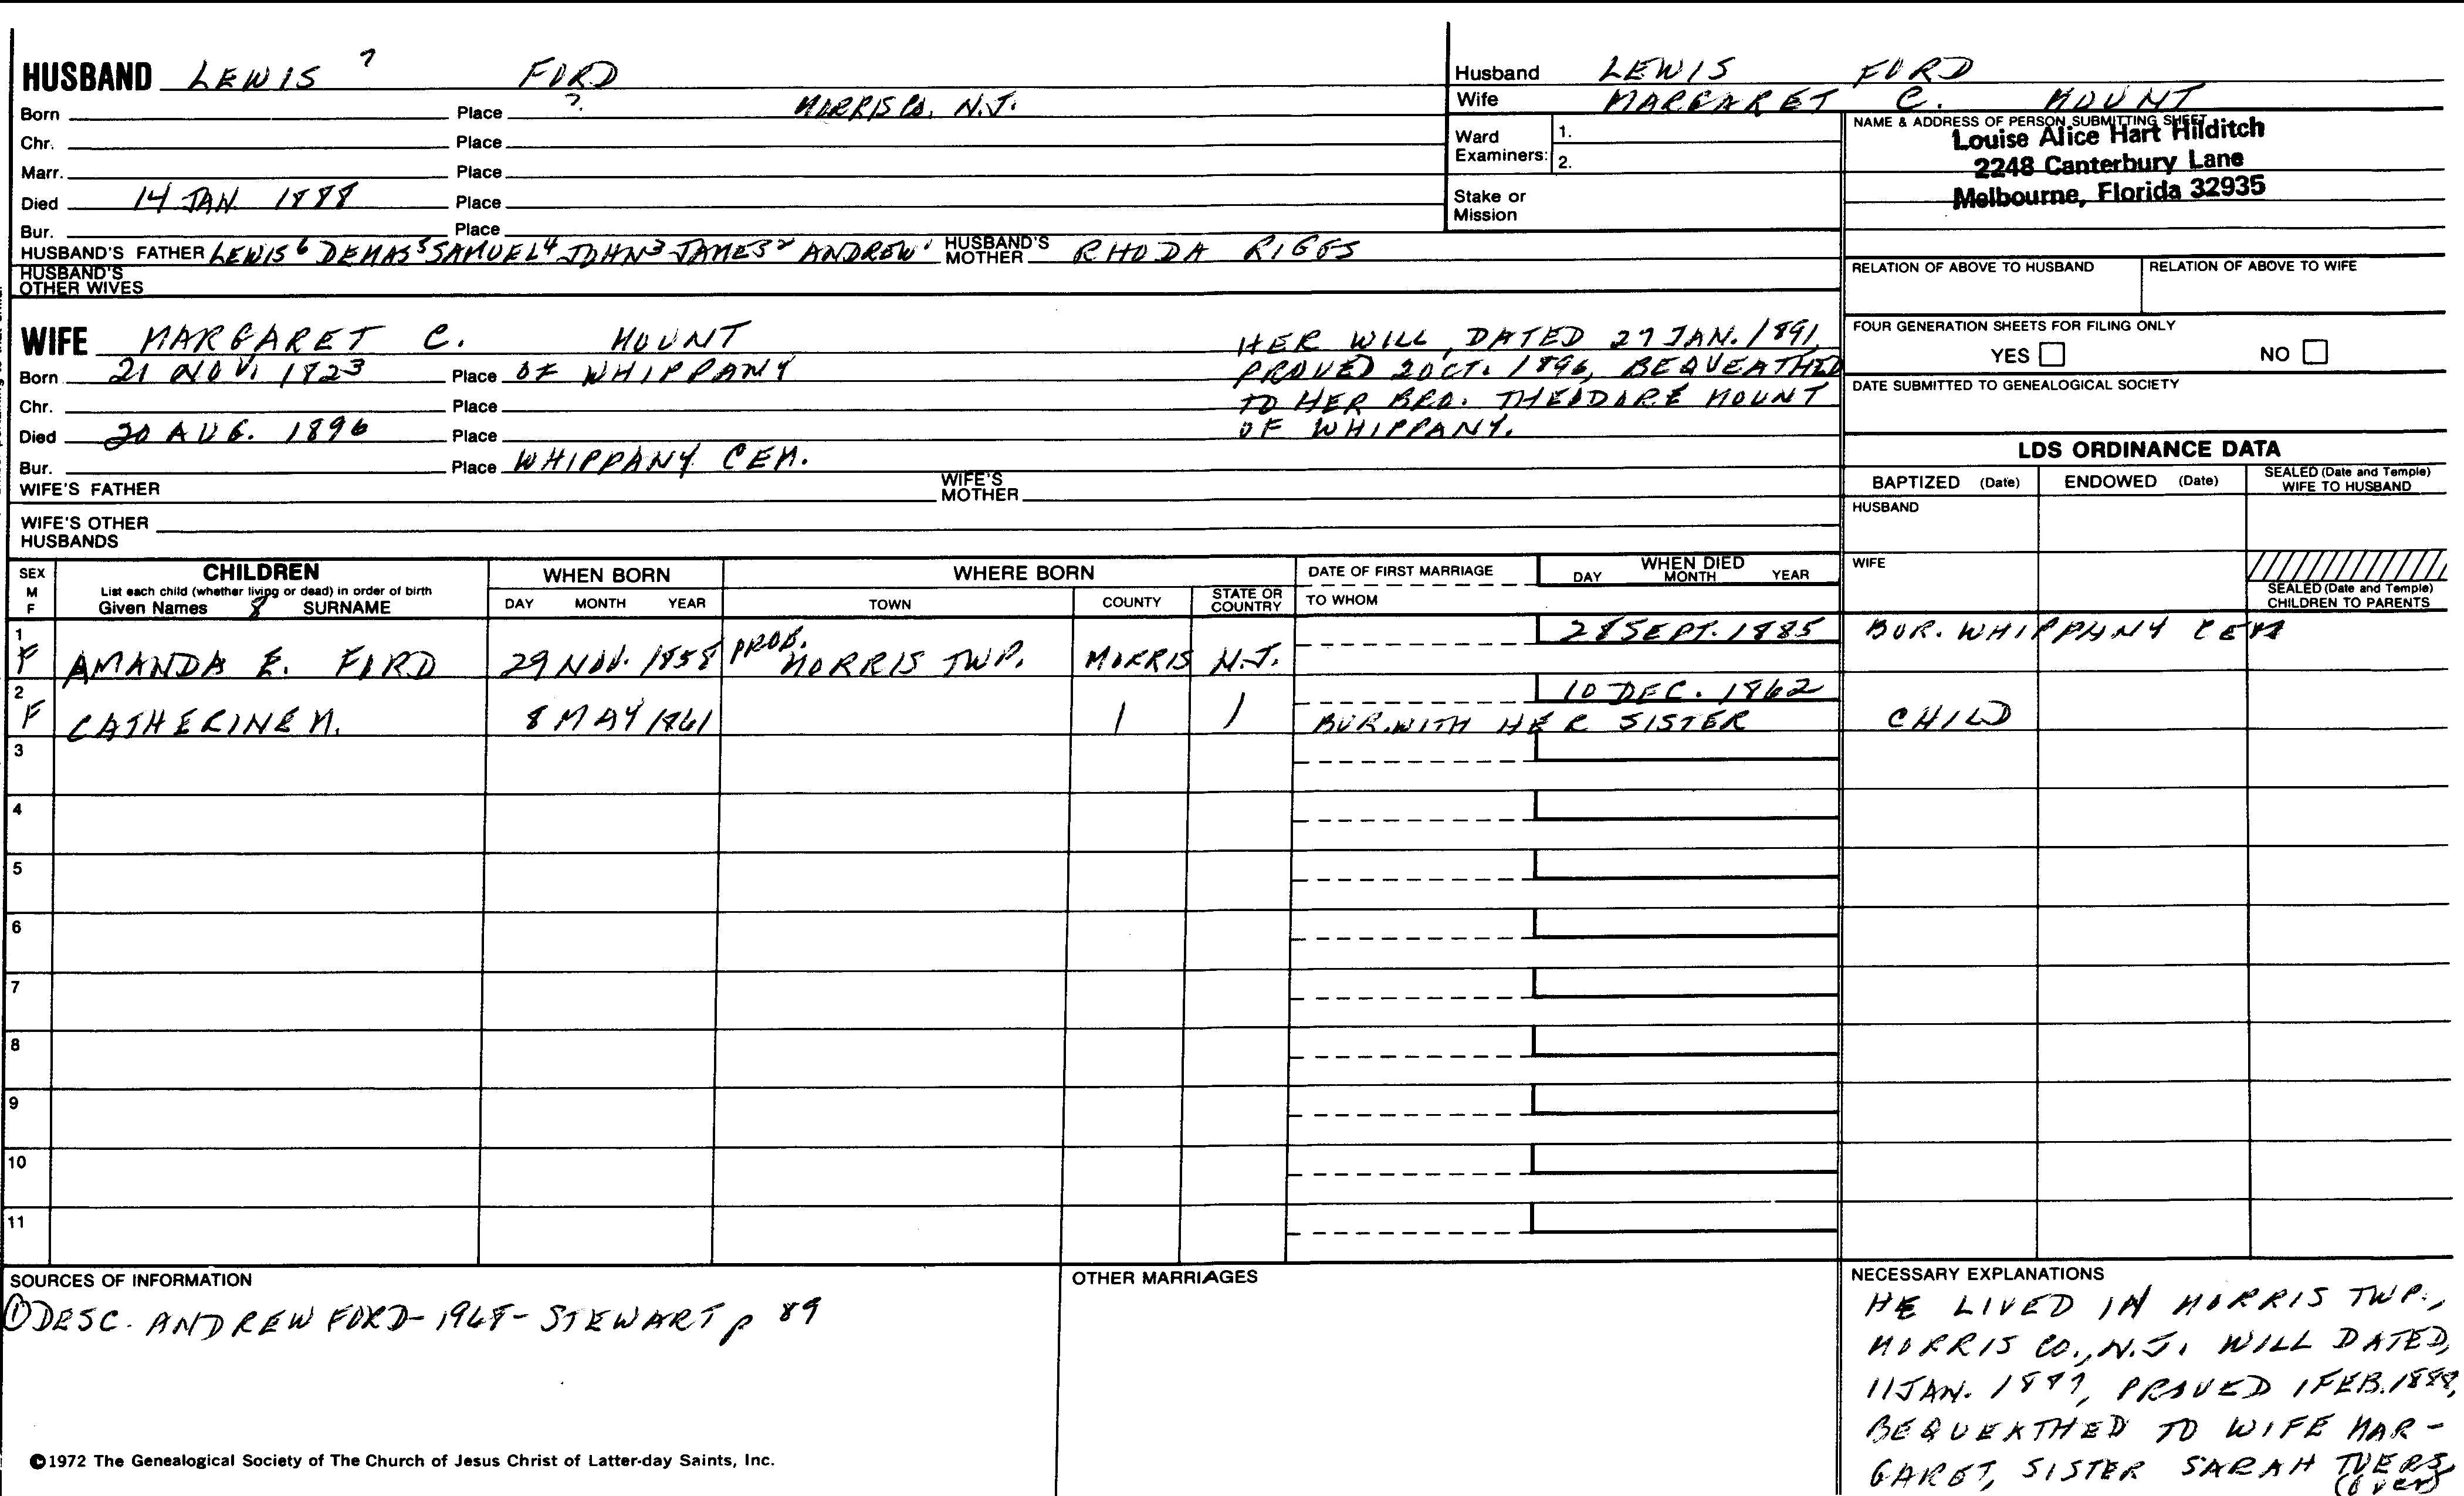 HUSBAND LEWIS ? FORD
Born Place ? MORRIS CO. N.J.
Chr. Place
Marr. Place
Died 14 JAN. 1888 Place
Bur. Place
HUSBAND'S FATHER LEWIS⁶ DEMAS⁵ SAMUEL⁴ JOHN³ JAMES² ANDREW¹ HUSBAND'S MOTHER RHODA RIGGS
HUSBAND'S OTHER WIVES
Husband LEWIS FORD
Wife MARGARET C. MOUNT
Ward Examiners: 1.
2.
Stake or Mission
NAME & ADDRESS OF PERSON SUBMITTING SHEET
Louise Alice Hart Hilditch
2248 Canterbury Lane
Melbourne, Florida 32935
RELATION OF ABOVE TO HUSBAND RELATION OF ABOVE TO WIFE
FOUR GENERATION SHEETS FOR FILING ONLY
YES NO
DATE SUBMITTED TO GENEALOGICAL SOCIETY
WIFE MARGARET C. MOUNT
Born 21 NOV. 1823 Place OF WHIPPANY
Chr. Place
Died 20 AUG. 1896 Place
Bur. Place WHIPPANY CEM.
HER WILL, DATED 27 JAN. 1891,
PROVED 2 OCT. 1896, BEQUEATHED
TO HER BRO. THEODORE MOUNT
OF WHIPPANY.
WIFE'S FATHER WIFE'S MOTHER
WIFE'S OTHER HUSBANDS
LDS ORDINANCE DATA
BAPTIZED (Date) ENDOWED (Date) SEALED (Date and Temple) WIFE TO HUSBAND
HUSBAND
WIFE
SEALED (Date and Temple) CHILDREN TO PARENTS
SEX M F CHILDREN WHEN BORN WHERE BORN DATE OF FIRST MARRIAGE WHEN DIED
List each child (whether living or dead) in order of birth
Given Names 8 SURNAME DAY MONTH YEAR TOWN COUNTY STATE OR COUNTRY TO WHOM DAY MONTH YEAR
1 28 SEPT. 1885 BUR. WHIPPANY CEM
F AMANDA E. FORD 29 NOV. 1858 PROB. MORRIS TWP. MORRIS N.J.
2 10 DEC. 1862
F CATHERINE M. 8 MAY 1861 BUR. WITH HER SISTER CHILD
3
4
5
6
7
8
9
10
11
SOURCES OF INFORMATION
① DESC. ANDREW FORD - 1968 - STEWART p 89
OTHER MARRIAGES
NECESSARY EXPLANATIONS
HE LIVED IN MORRIS TWP.,
MORRIS CO., N.J. WILL DATED,
11 JAN. PROVED 1 FEB. 1888,
BEQUEATHED TO WIFE MAR-
GARET, SISTER SARAH
(over)
©1972 The Genealogical Society of The Church of Jesus Christ of Latter-day Saints, Inc.